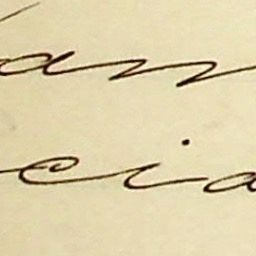 am
cia